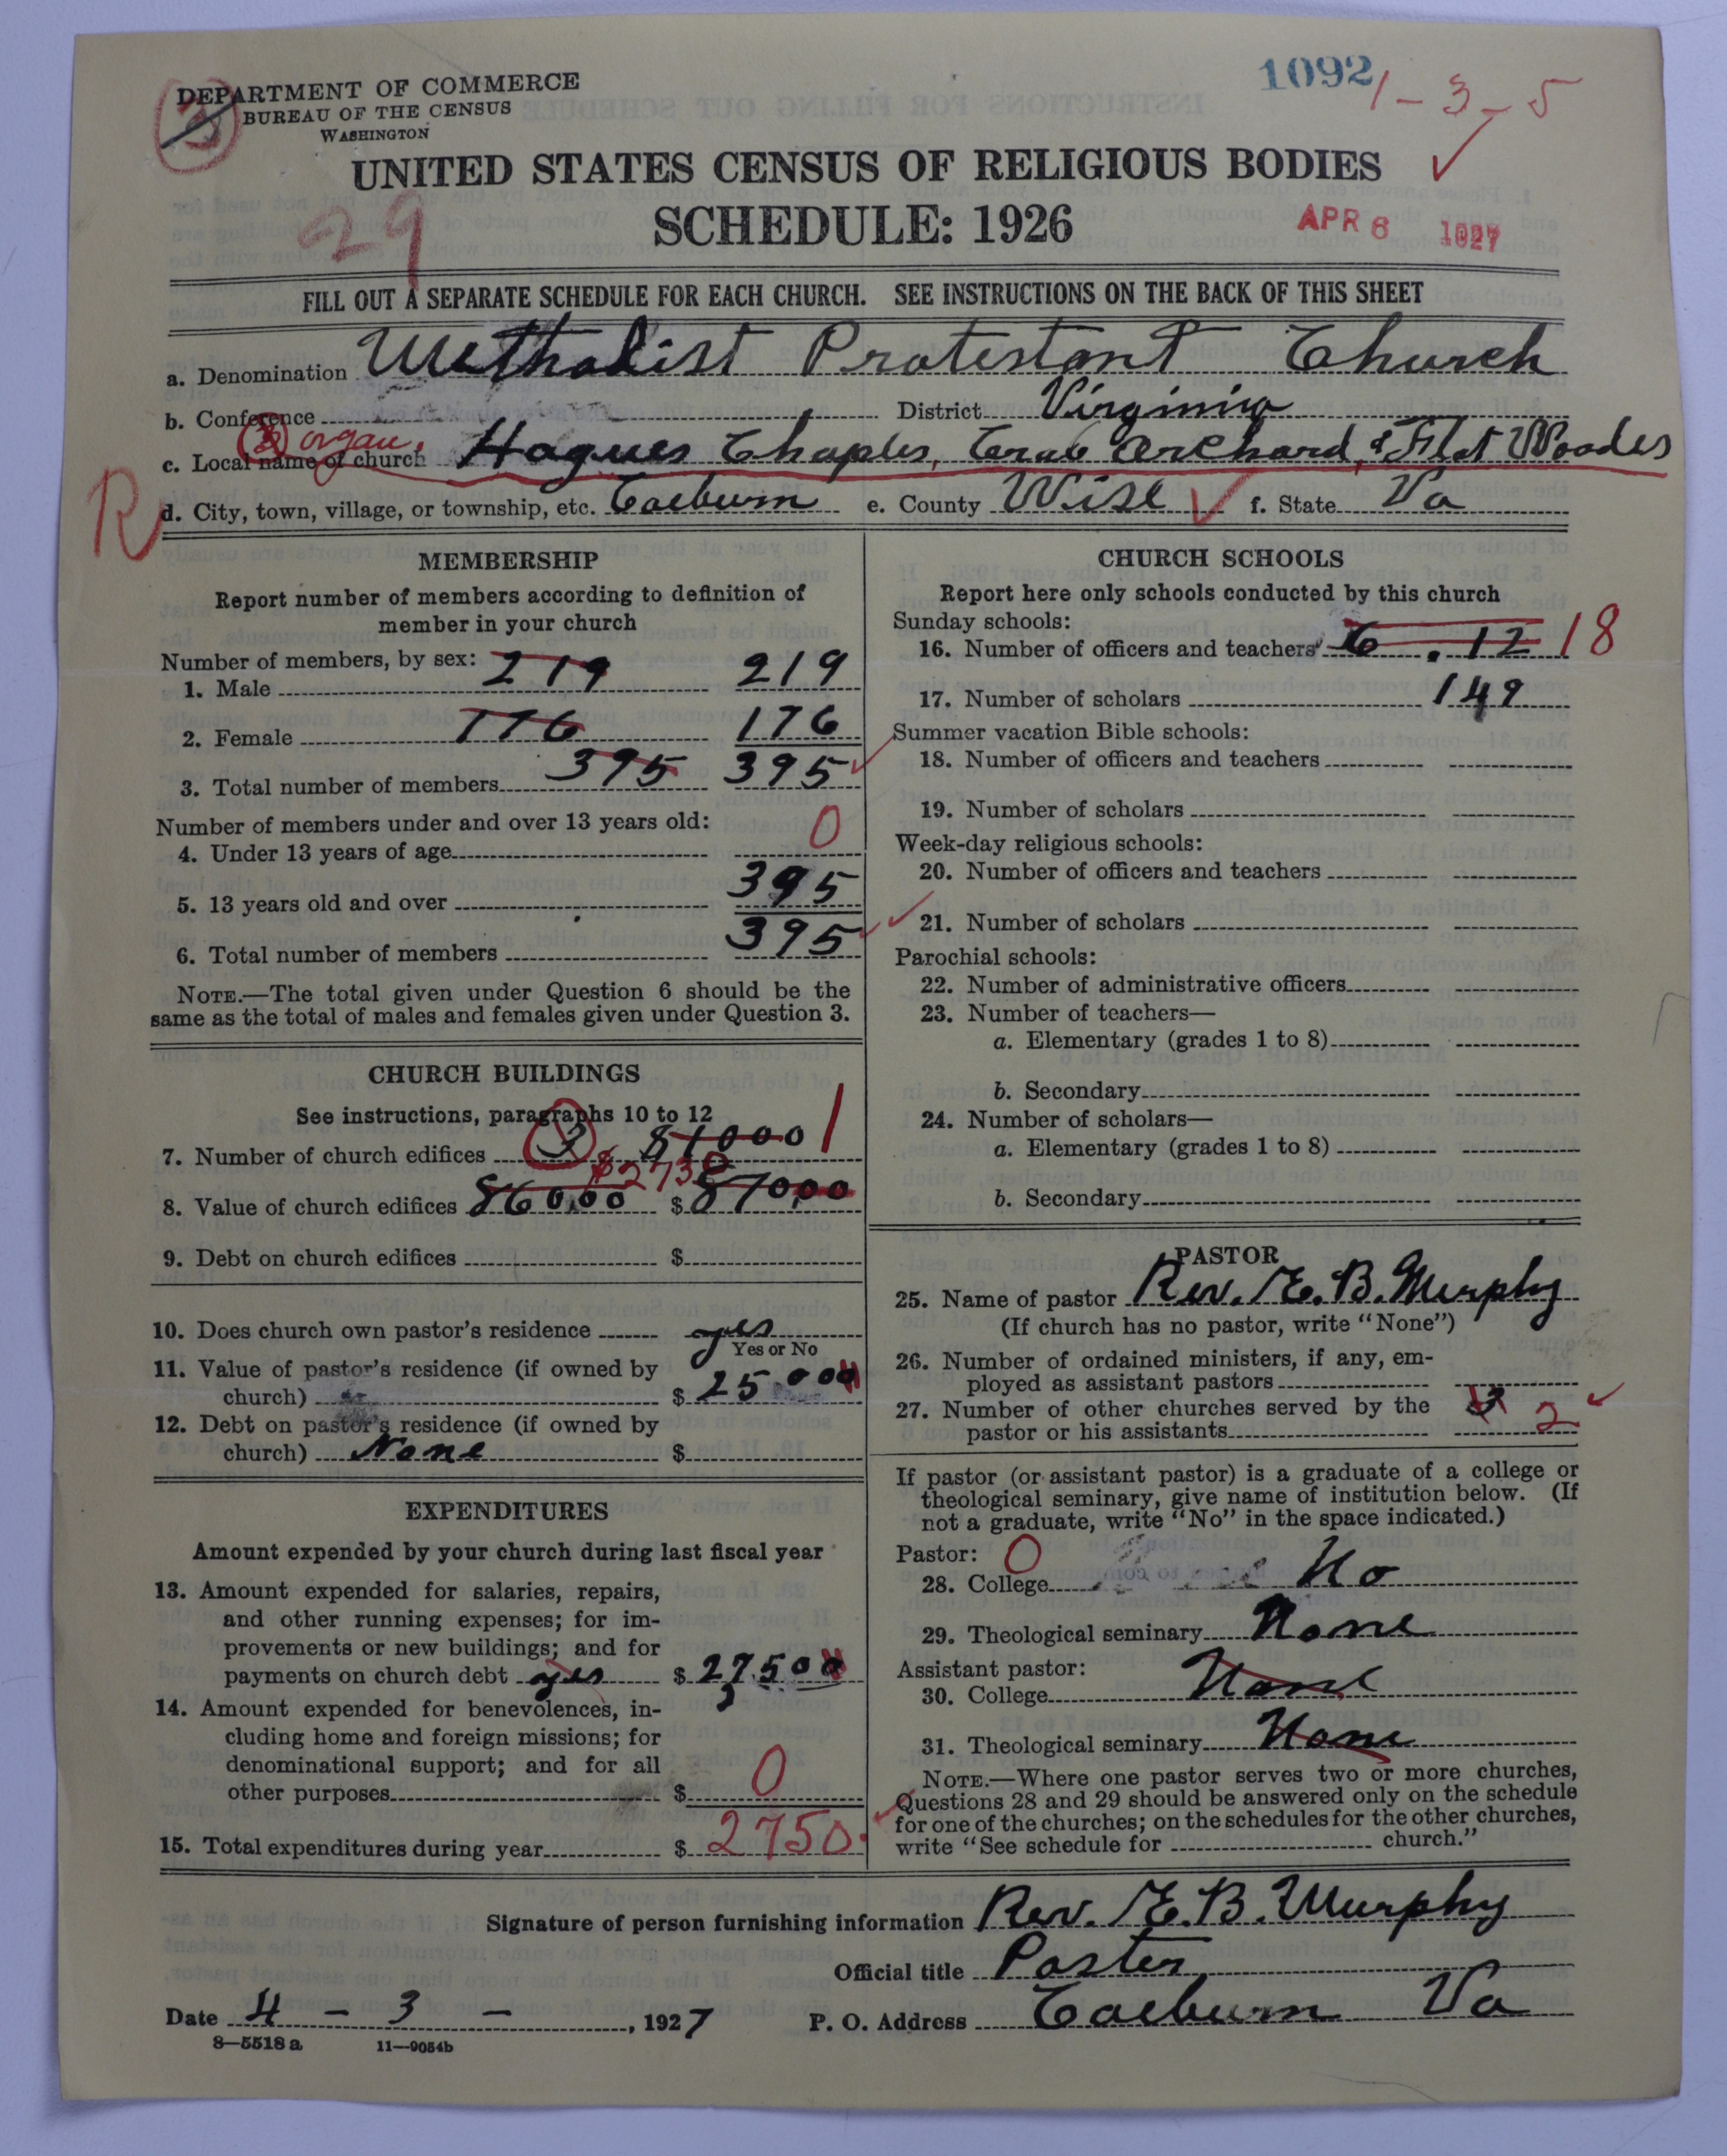 1092 1-3-5
DEPARTMENT OF COMMERCE
BUREAU OF THE CENSUS
WASHINGTON
3
UNITED STATES CENSUS OF RELIGIOUS BODIES
29
SCHEDULE: 1926
APR 6 1927
FILL OUT A SEPARATE SCHEDULE FOR EACH CHURCH. SEE INSTRUCTIONS ON THE BACK OF THIS SHEET
a. Denomination Methodist Protestant Church
b. Conference District Virginia
3 organ.
c. Local name of church Hagues Chaples, Crab Orchard, & Flat Woodes
R
d. City, town, village, or township, etc. Coeburn e. County Wise f. State Va
MEMBERSHIP
Report number of members according to definition of
member in your church
Number of members, by sex:
1. Male 219 219
2. Female 176 176
3. Total number of members 395 395
Number of members under and over 13 years old:
4. Under 13 years of age 0
5. 13 years old and over 395
6. Total number of members 395
NOTE.—The total given under Question 6 should be the
same as the total of males and females given under Question 3.
CHURCH BUILDINGS
See instructions, paragraphs 10 to 12
7. Number of church edifices 3 1
8. Value of church edifices $
9. Debt on church edifices $
10. Does church own pastor's residence yes
Yes or No
11. Value of pastor's residence (if owned by
church) $ 25 000
12. Debt on pastor's residence (if owned by
church) None $
EXPENDITURES
Amount expended by your church during last fiscal year
13. Amount expended for salaries, repairs,
and other running expenses; for im-
provements or new buildings; and for
payments on church debt yes $ 27,500
14. Amount expended for benevolences, in-
cluding home and foreign missions; for
denominational support; and for all
other purposes $ 0
15. Total expenditures during year $ 2750.
CHURCH SCHOOLS
Report here only schools conducted by this church
Sunday schools:
16. Number of officers and teachers 6 . 12 18
17. Number of scholars 149
Summer vacation Bible schools:
18. Number of officers and teachers
19. Number of scholars
Week-day religious schools:
20. Number of officers and teachers
21. Number of scholars
Parochial schools:
22. Number of administrative officers
23. Number of teachers—
a. Elementary (grades 1 to 8)
b. Secondary
24. Number of scholars—
a. Elementary (grades 1 to 8)
b. Secondary
PASTOR
25. Name of pastor Rev. E. B. Murphy
(If church has no pastor, write "None")
26. Number of ordained ministers, if any, em-
ployed as assistant pastors
27. Number of other churches served by the
pastor or his assistants 3 2
If pastor (or assistant pastor) is a graduate of a college or
theological seminary, give name of institution below. (If
not a graduate, write "No" in the space indicated.)
Pastor: 0
28. College No
29. Theological seminary None
Assistant pastor:
30. College None
31. Theological seminary None
NOTE.—Where one pastor serves two or more churches,
Questions 28 and 29 should be answered only on the schedule
for one of the churches; on the schedules for the other churches,
write "See schedule for church."
Signature of person furnishing information Rev. E. B. Murphy
Official title Paster
Date 4 - 3 - , 1927 P. O. Address Coeburn Va
8—5518 a 11—9054b